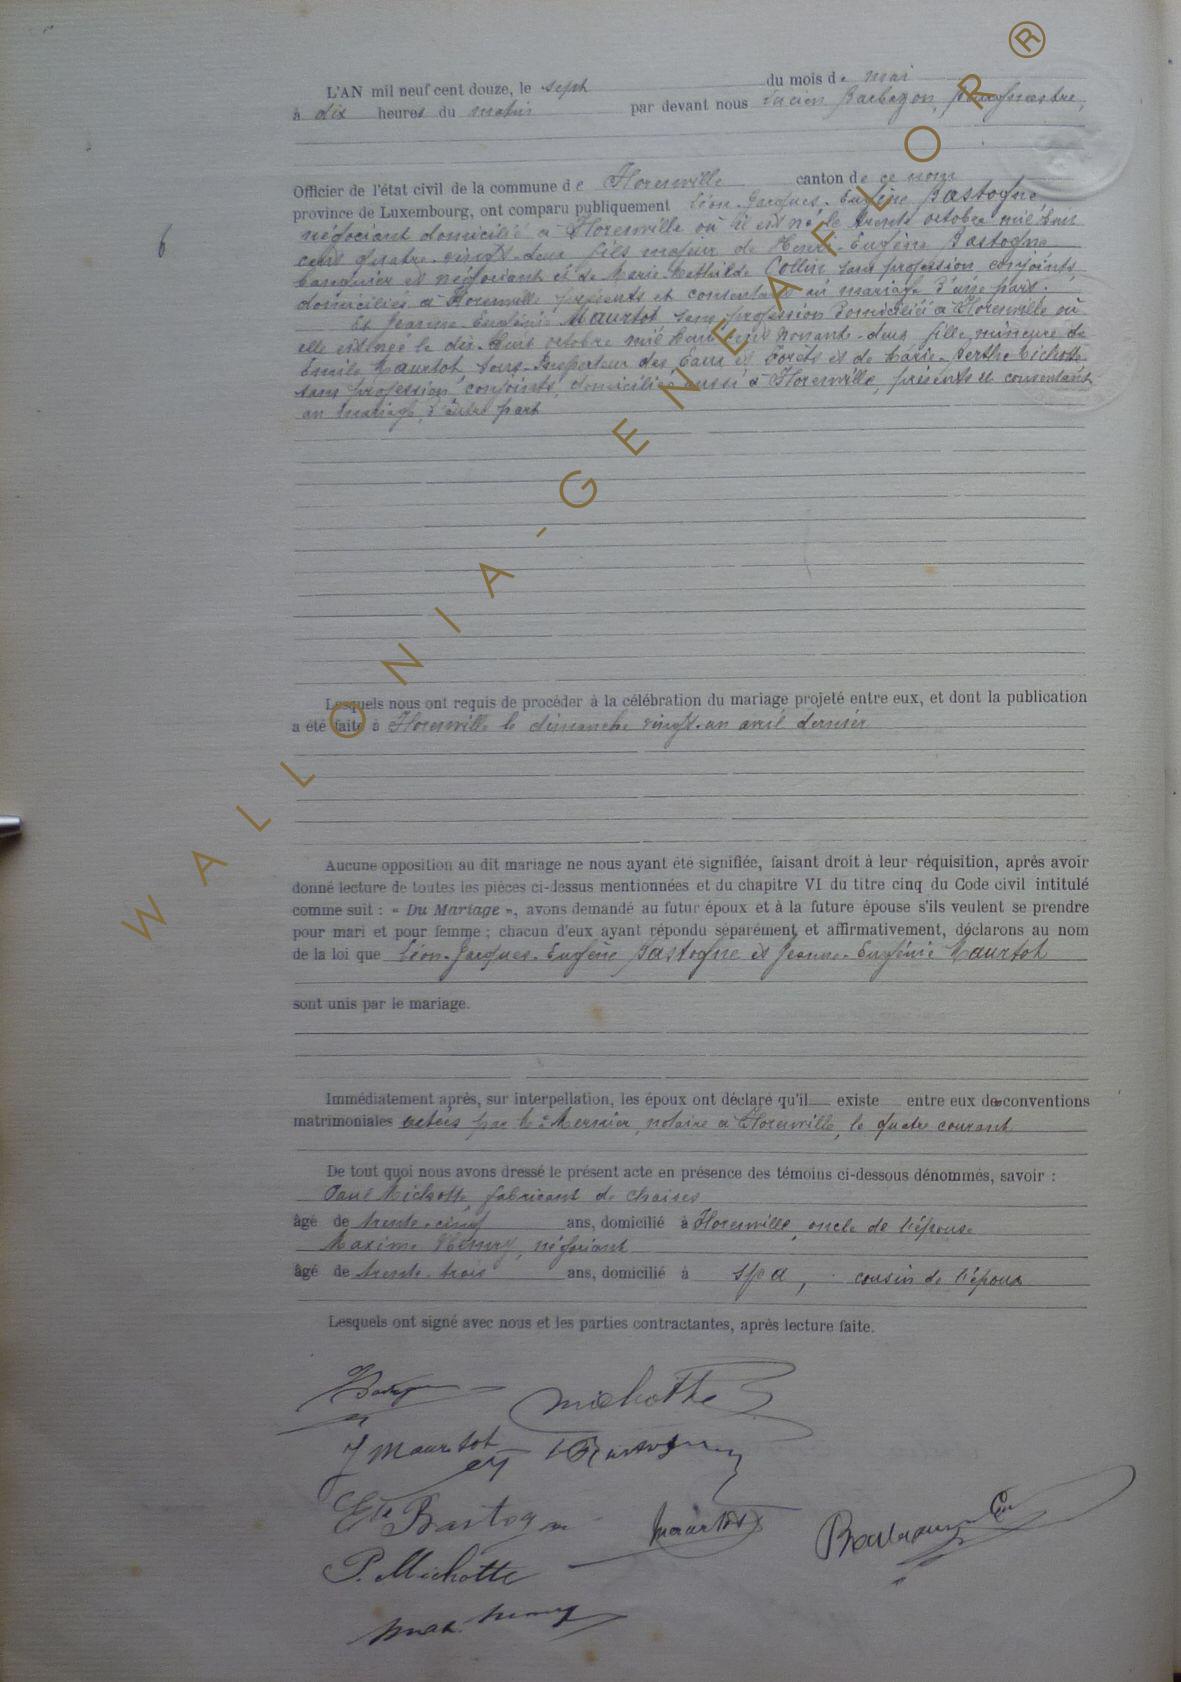 L'AN mil neuf cent douze, le sept du mois de mai
à dix heures du matin par devant nous Lucien Barbazon, bourgmestre,
Officier de l'état civil de la commune de Florenville canton de ce nom
province de Luxembourg, ont comparu publiquement Léon-Jacques-Eugène Bastogne
négociant domicilié à Florenville où il est né le trente octobre mil huit
cent quatre-vingt-deux fils majeur de Henri-Eugène Bastogne
banquier et négociant et de Marie-Mathilde Collin sans profession conjoints
domiciliés à Florenville présents et consentant au mariage d'une part.
Et Jeanne-Eugénie Maurtot sans profession domiciliée à Florenville où
elle est née le dix-huit octobre mil huit cent nonante-deux fille mineure de
Emile Maurtot Sous-Inspecteur des Eaux et Forêts et de Marie-Berthe Michotte
sans profession conjoints, domiciliés aussi à Florenville, présents et consentant
au mariage, d'autre part
6
Lesquels nous ont requis de procéder à la célébration du mariage projeté entre eux, et dont la publication
a été faite à Florenville le dimanche vingt-un avril dernier
Aucune opposition au dit mariage ne nous ayant été signifiée, faisant droit à leur réquisition, après avoir
donné lecture de toutes les pièces ci-dessus mentionnées et du chapitre VI du titre cinq du Code civil intitulé
comme suit : « Du Mariage », avons demandé au futur époux et à la future épouse s'ils veulent se prendre
pour mari et pour femme ; chacun d'eux ayant répondu séparément et affirmativement, déclarons au nom
de la loi que Léon-Jacques-Eugène Bastogne et Jeanne-Eugénie Maurtot
sont unis par le mariage.
Immédiatement après, sur interpellation, les époux ont déclaré qu'il existe entre eux des conventions
matrimoniales actées par Me Mernier, notaire à Florenville, le quatre courant
De tout quoi nous avons dressé le présent acte en présence des témoins ci-dessous dénommés, savoir :
Paul Michotte fabricant de chaises
âgé de trente-cinq ans, domicilié à Florenville, oncle de l'épouse
Maxime Henry, négociant
âgé de trente-trois ans, domicilié à cousin de l'époux
Lesquels ont signé avec nous et les parties contractantes, après lecture faite.
Michotte
J Maurtot
Bastogne
Maurtot
P. Michotte
Max. Henry
WALLONIA-GENEAFLOR®